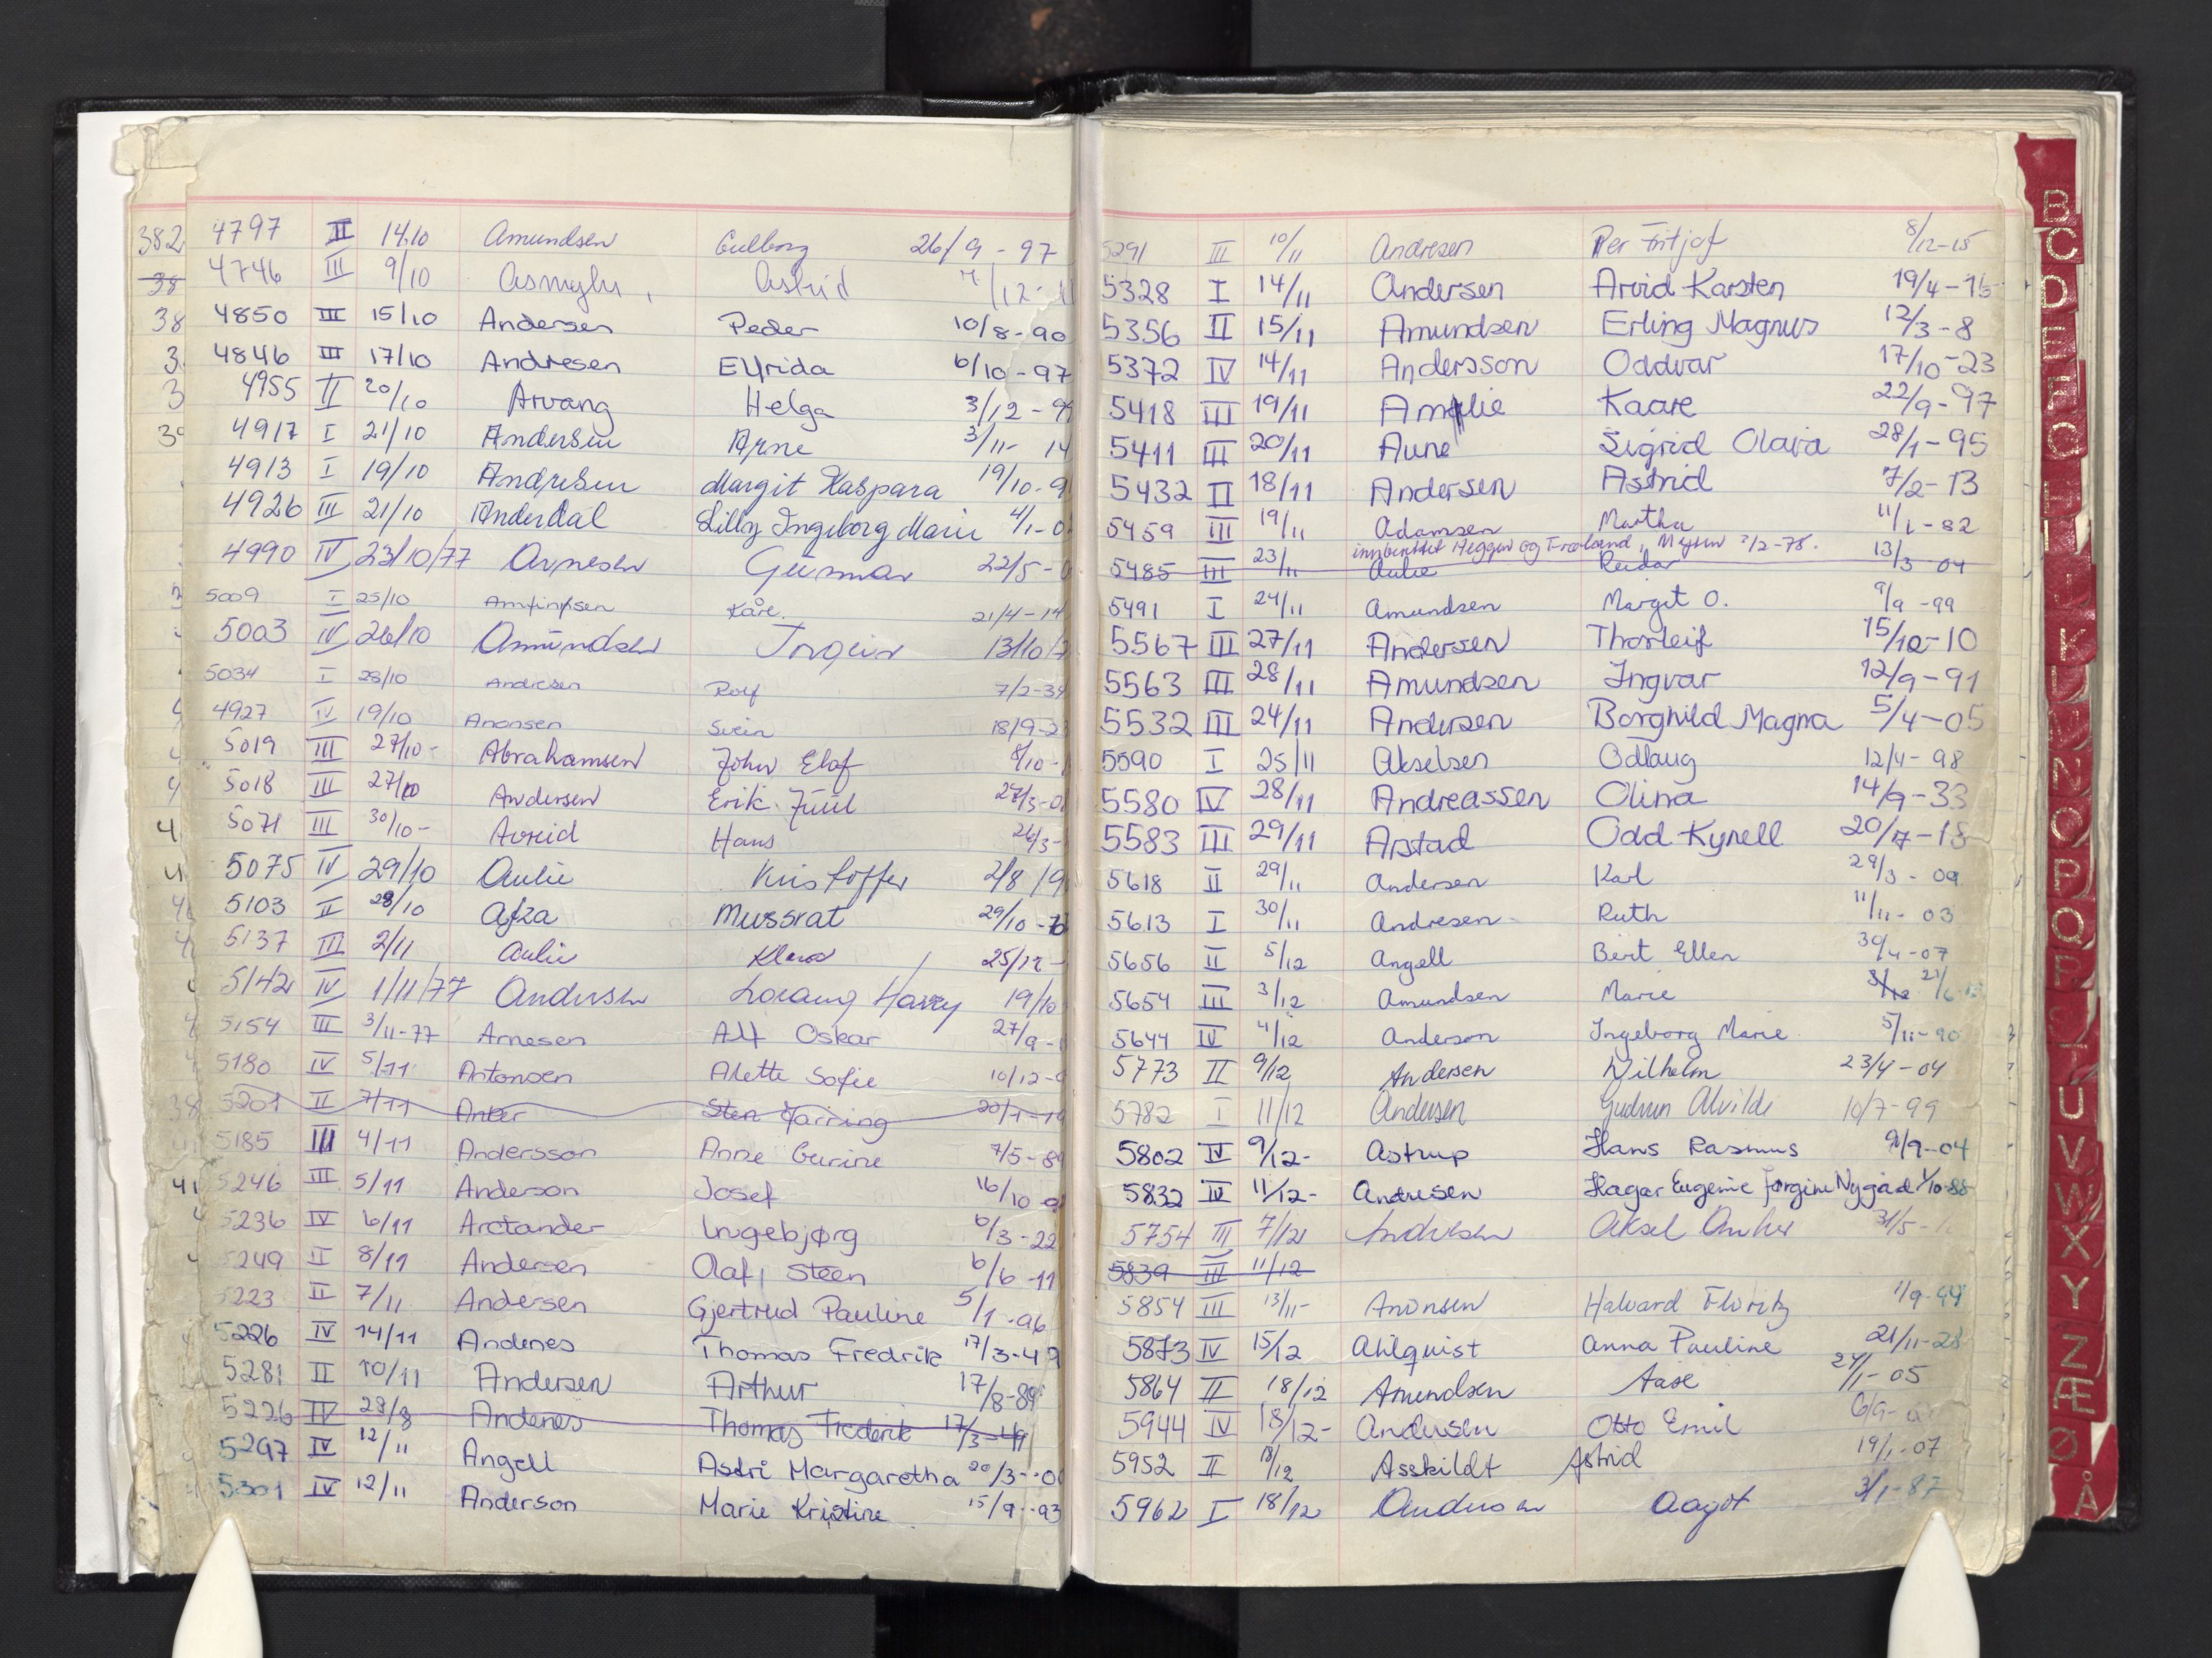 382 4797 II 14.10 Amundsen Gulborg 26/9 - 97
38 4746 III 9/10 Astrid
38 4850 III 15/10 Andersen Peder 10/8-90
3 4846 III 17/10 Andresen Elfrida 6/10-97
3 4955 II 20/10 Arvang Helga 3/12-9
4917 I 21/10 Andersen Arne 3/11- 14
4913 I 19/10 Andresen Margit Kaspara 19/10-9
4926 III 21/10 Anderdal Lilly Ingeborg Marie 4/1-0
4990 IV 23/10/77 Arnesen Gunnar 22/5-
5009 I 25/10 Amfinnsen Kåre. 21/4-14
5003 IV 26/10 Amundsen 13/10/
5034 I 28/10 Andresen Rolf 7/2-39
4927 IV 19/10 Anonsen Svein 18/9-2
5019 III 27/10- Abrahamsen John Elof 8/10-
5018 III 27/10 Andersen Erik Juul 27/3-0
4 5071 III 30/10- Hans 26/3-
5075 IV 29/10 Aulie Kristoffer 2/8/9
5103 II 28/10 Afza Mussrat 29/10-
5137 III 2/11 Aulie Klara 25/12-
5142 IV 1/11/77 Andersen Lorang Harry 19/10
5154 III 3/11-77 Arnesen Alf Oskar 27/9-
5180 IV 5/11 Antonsen Alette Sofie 10/12-9
38 5201 II 7/11 Anker Sten Jarring 20/1-1
5185 III 4/11 Andersson Anne Gurine 7/5-89
41 5246 III 5/11 Anderson Josef 16/10-9
5236 IV 6/11 Arctander Ingebjørg 6/3-22
5249 II 8/11 Andersen Olaf Steen 6/6-11
5223 II 7/11 Andersen Gjertrud Pauline 5/1-96
5226 IV 14/11 Andenes Thomas Fredrik 17/3-49
5281 II 10/11 Andersen Arthur 17/8-89
5226 IV 28/8 Andenes Thomas Frederik 17/3-49
5297 IV 12/11 Angell Astri Margaretha 20/3--0
5301 IV 12/11 Anderson Marie Kristine 15/9--93
5291 III 10/11 Andresen Per Fritjof 8/12-15
5328 I 14/11 Andersen Arvid Karsten 19/4-15
5356 II 15/11 Amundsen Erling Magnus 12/3-8
5372 IV 14/11 Andersson Oddvar 17/10-23
5418 III 19/11 Amlie Kaare 22/9-97
5411 III 20/11 Aune Sigrid Olava 28/1-95
5432 II 18/11 Andersen Astrid 7/2-13
5459 III 19/11 Adamsen Martha 11/1-82
innberettet Heggen og Frøland, Mysen 2/2-78.
5485 III 23/11 Aulie Reidar 13/3 04
5491 I 24/11 Amundsen Margit O. 9/9-99
5567 III 27/11 Andersen Thorleif 15/10-10
5563 III 28/11 Amundsen Ingvar 12/9-91
5532 III 24/11 Andersen Borghild Magna 5/4-05
5590 I 25/11 Akselsen Odlaug 12/4-98
5580 IV 28/11 Andreassen Olina 14/9-33
5583 III 29/11 Arstad Odd Kynell 20/7-18
5618 II 29/11 Andersen Karl 29/3-09
5613 I 30/11 Andresen Ruth 11/11-03
5656 II 5/12 Angell Berit Ellen 30/4-07
5654 III 3/12 Amundsen Marie 3/12 21/6-
5644 IV 4/12 Anderson Ingeborg Marie 5/11-90
5773 II 9/12 Andersen Wilhelm 23/4-04
5782 I 11/12 Andersen Gudrun Alvilde 10/7-99
5802 IV 9/12- Astrup Hans Rasmus 9/9-04
5832 IV 11/12- Andresen Hagar Eugenie Jørgine Nygård 1/10-88
5754 III 7/12 Andresen Aksel 31/5-
5839 III 11/12
5854 III 13/11- Anonsen Halvard 1/9-44
5873 IV 15/12 Ahlquist Anna Pauline 21/11-28
5864 II 18/12 Amundsen Aase 24/1-05
5944 IV 18/12- Andersen Otto Emil 6/9-
5952 II 18/12 Asskildt Astrid 19/1-07
5962 I 18/12 Andersen Aagot 3/1-87
B
C
D
E
F
G
K
N
O
P
Q
U
V
W
X
Y
Z
Æ
Ø
Å